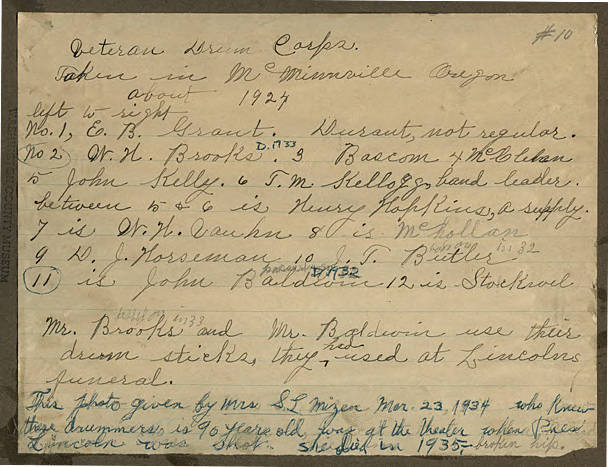 #10
Veteran Drum Corps.
Taken in McMinnville Oregon
about 1927
left to right
No. 1, E. B. Grant. Durant, not regular.
No 2) W. H. Brooks. D.1933 3 Bascom 4 McClellan
5 John Kelly. 6 T. M. Kellogg, band leader.
between 5 & 6 is Henry Hopkins, a supply.
7 is W. H. Vauhn 8 is McKollan
9 D. J. Horseman 10 J. T. Butler in 32
11 is John Baldwin D 1932 12 is Stockwel
Mr. Brooks in 33 and Mr. Baldwin use their
drum sticks, they had used at Lincolns
funeral.
This photo given by Mrs S.L. Mizen Mar. 23, 1934 who knew
these drummers, is 90 years old, was at the theater when Pres
Lincoln was shot. she died in 1935,- broken hip.
COUNTY MUSEUM